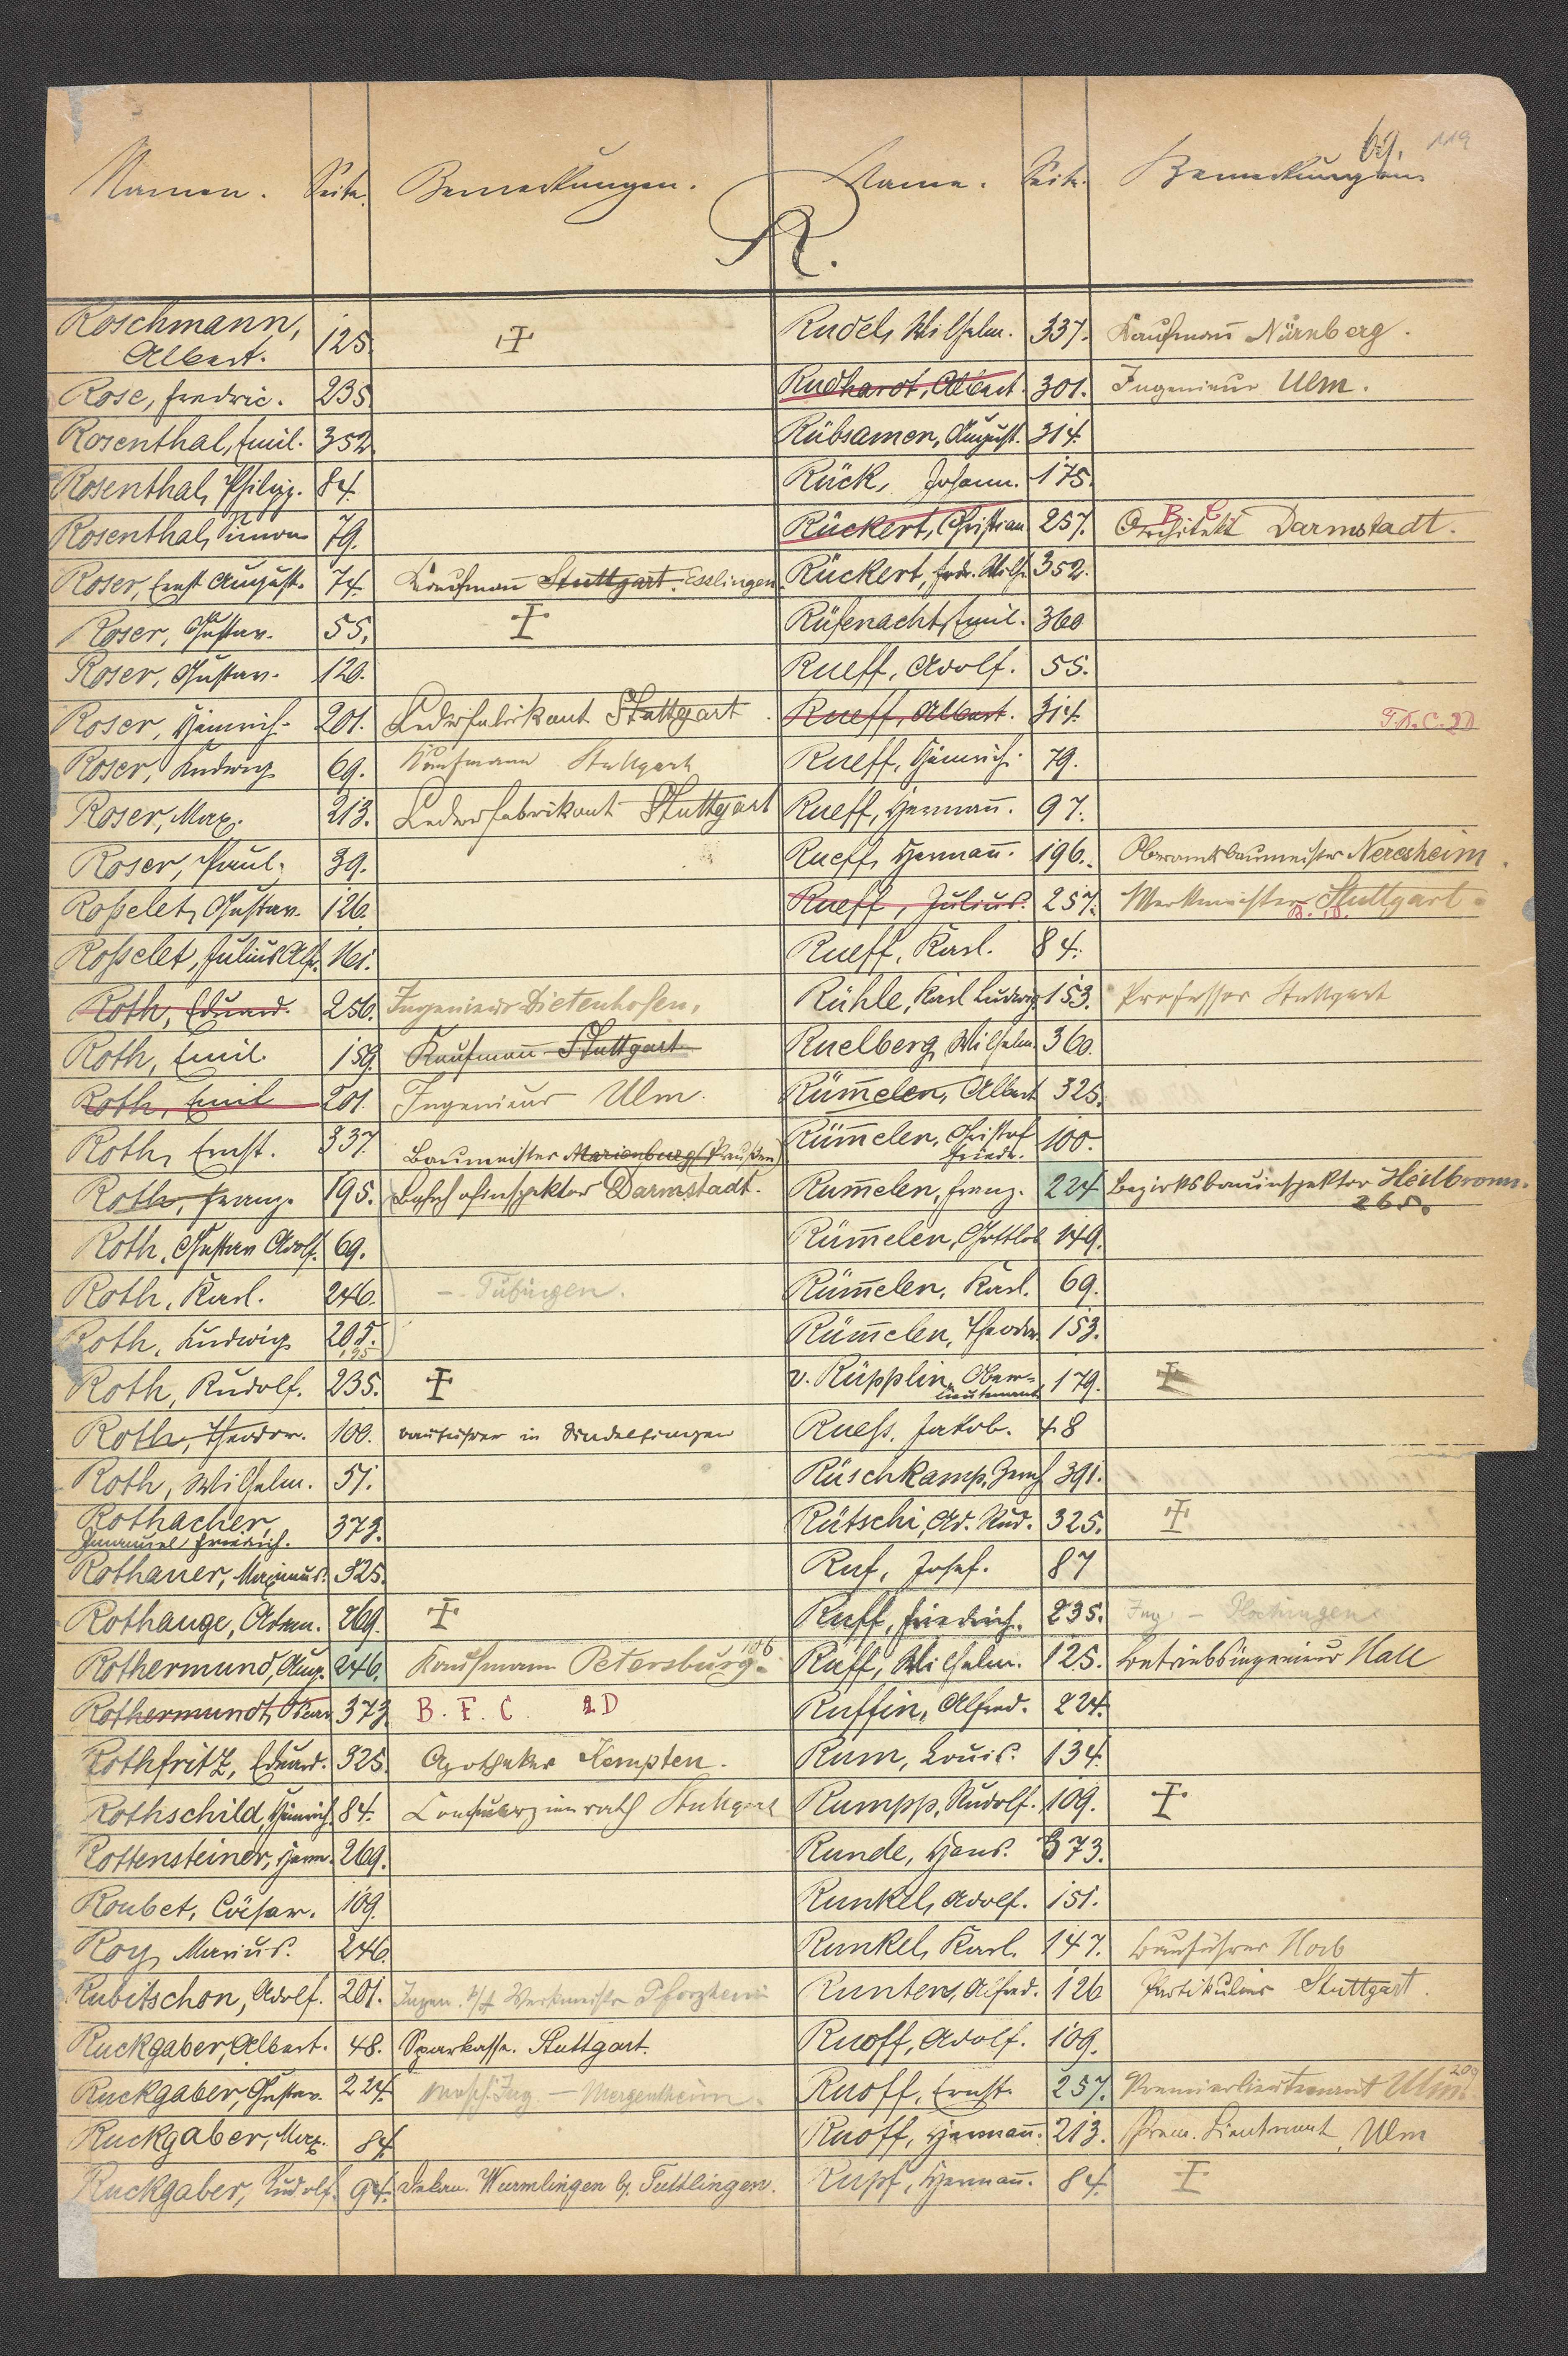 69. 119
Namen. Seite. Bemerkungen.
R.
Roschmann, Albert. 125. ‡
Rose, Fredric. 235
Rosenthal, Emil. 352
Rosenthal, Philipp. 84.
Rosenthal, Simon 79.
Roser, Ernst August. 74. Kaufmann Stuttgart. Esslingen
Roser, Gustav. 55. ‡
Roser, Gustav. 120.
Roser, Heinrich. 201. Lederfabrikant Stuttgart
Roser, Ludwig 69. Kaufmann Stuttgart
Roser, Max. 213. Lederfabrikant Stuttgart
Roser, Paul. 39.
Roßelet, Gustav. 126.
Roßelet, Julius Alf. 161.
Roth, Eduard. 256. Ingenieur Dietenhofen.
Roth, Emil. 159. Kaufmann Stuttgart
Roth, Emil 201. Ingenieur Ulm.
Roth, Ernst. 337. Baumeister Marienburg (Preußen)
Roth, Franz. 195. Bahnhofinspektor Darmstadt.
Roth, Gustav Adolf. 69.
Roth, Karl. 246. – Tübingen.
Roth, Ludwig 205. 195
Roth, Rudolf. 235. ‡
Roth, Theodor. 100. Bauführer in Sindelfingen
Roth, Wilhelm. 51.
Rothacher, Immanuel Friedrich. 373.
Rothauer, Maximus. 325.
Rothauge, Adam. 269. ‡
Rothermund, Aug. 246. Kaufmann Petersburg. 106
Rothermundt, Oscar 373. B. F. C. 2D
Rothfritz, Eduard. 325. Apotheker Kempten.
Rothschild, Heinrich. 84. Stuttgart
Rottensteiner, Herm. 269.
Roubet, Cäsar. 109.
Roy, Marius. 246.
Rubitschon, Adolf. 201. Ingen. Werkmeister Pforzheim
Ruckgaber, Albert. 48. Sparkasse. Stuttgart.
Ruckgaber, Gustav. 224. Masch. Ing – Mergentheim.
Ruckgaber, Max. 84
Ruckgaber, Rudolf. 94. Dekan. Wurmlingen b/. Tuttlingen.
Name. Seite. Bemerkungen
Rudel, Wilhelm. 337. Kaufmann Nürnberg.
Rudhardt, Albert. 301. Ingenieur Ulm.
Rübsamen, August. 314.
Rück, Johann. 175.
Rückert, Christian 257. Architekt Darmstadt. B C
Rückert, Fried. Wilh. 352.
Rüfenacht, Emil. 360
Rueff, Adolf. 55.
Rueff, Albert. 314. F.A.C.2D
Rueff, Heinrich. 79.
Rueff, Hermann. 97.
Rueff, Hermann. 196. Oberamtsbaumeister Neresheim.
Rueff, Julius. 257. Werkmeister Stuttgart. B. D.
Rueff, Karl. 84.
Rühle, Karl Ludwig 153. Professor Stuttgart
Ruelberg, Wilhelm 360.
Rümelen, Albert 325.
Rümelen, Christof Friedr. 100.
Rumelen, Franz. 224 Bezirksbauinspektor Heilbronn. 265.
Rümelen, Gottlob 149.
Rümelen, Karl. 69.
Rümelen, Theodor. 153.
v. Rüpplin, Ober=lieutenant 179. ‡
Rueß, Jakob. 48
Rüschkamp, Josef 391.
Rütschi, Ad. Rud. 325. ‡
Ruf, Josef. 87
Ruff, Friedrich. 235. Ing. – Plochingen
Ruff, Wilhelm. 125. Betriebsingenieur Hall
Ruffin, Alfred. 224.
Rum, Louis. 134.
Rumpp, Rudolf. 109. ‡
Runde, Hans. 373.
Runkel, Adolf. 151.
Runkel, Karl. 147. Bauführer Horb
Runten, Alfred. 126 Partikulier Stuttgart.
Ruoff, Adolf. 109.
Ruoff, Ernst. 257. Premierlieutenant Ulm. 209
Ruoff, Hermann. 213. Prem. Lieutenant, Ulm
Rupf, Hermann. 84. ‡